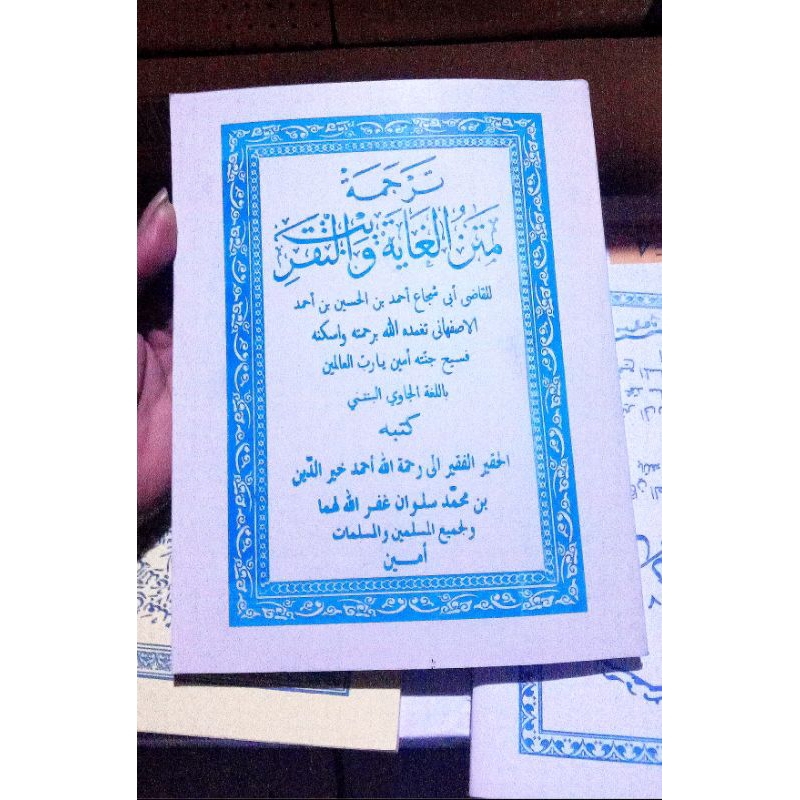 تَرْجَمَةْ
مَتَنُ الْغَايَةْ وَالتَّقْرِيْبْ
للقاضى أبى شجاع أحمد بن الحسين بن أحمد
الاصفهانى تغمده الله برحمته واسكنه
فسيح جنته أمين يارب العالمين
باللغة الجاوي
كتبه
الحقير الفقير الى رحمة الله أحمد خير الدّين
بن محمّد سلوان غفر الله لهما
ولجميع المسلمين والمسلمات
أمين